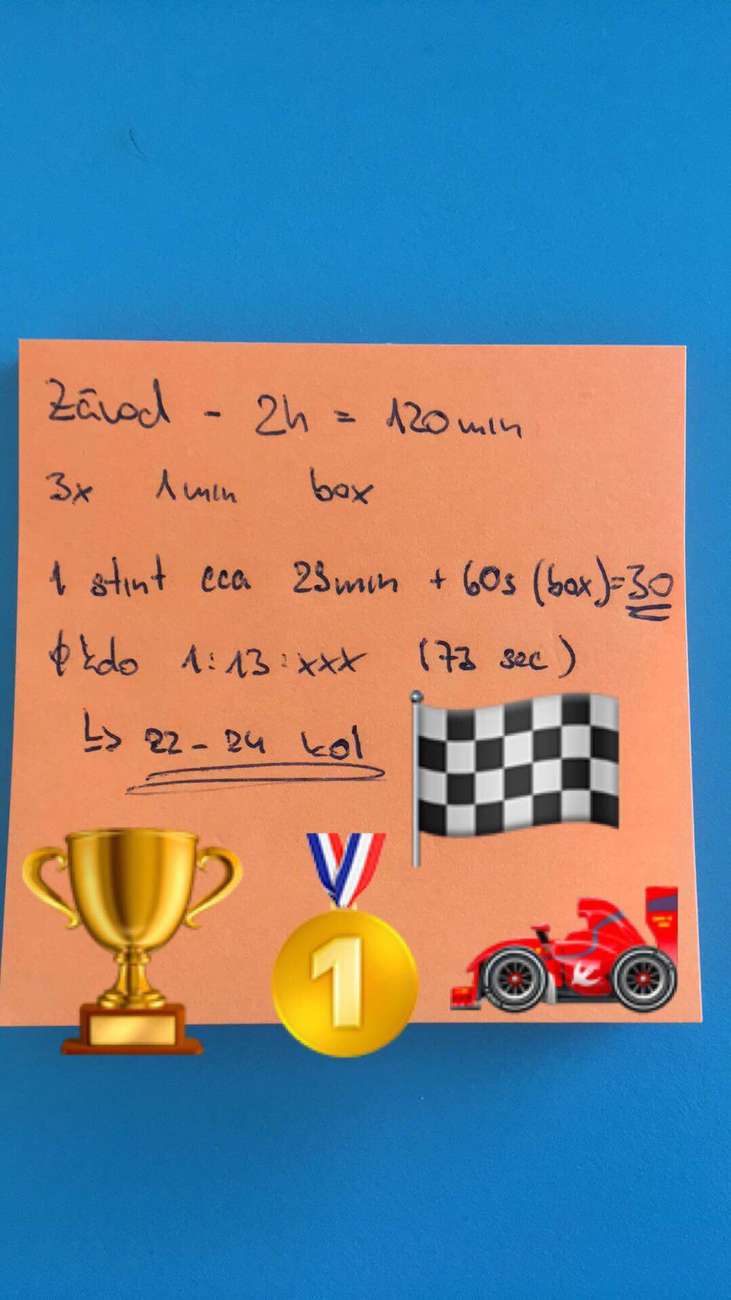 Závod - 2h = 120min
3x 1min box
1 stint cca 29min + 60s (box)=30
ϕ kolo 1:13:xxx (73 sec)
↳ 22-24 kol
1